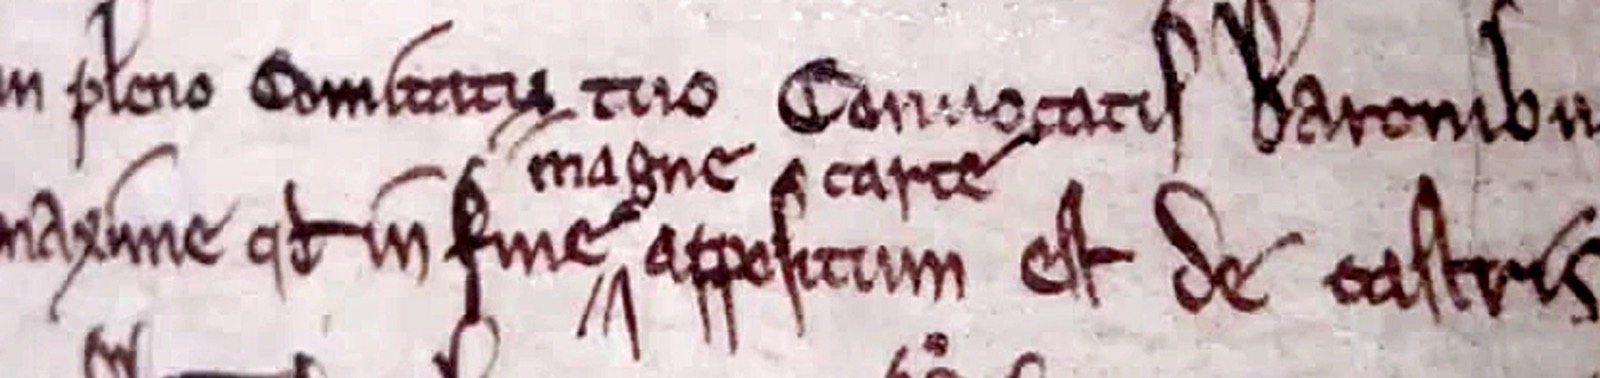 in pleno Comitatu tuo Convocatis Baronibu
magne carte
maxime qd in fine appositum est de castris